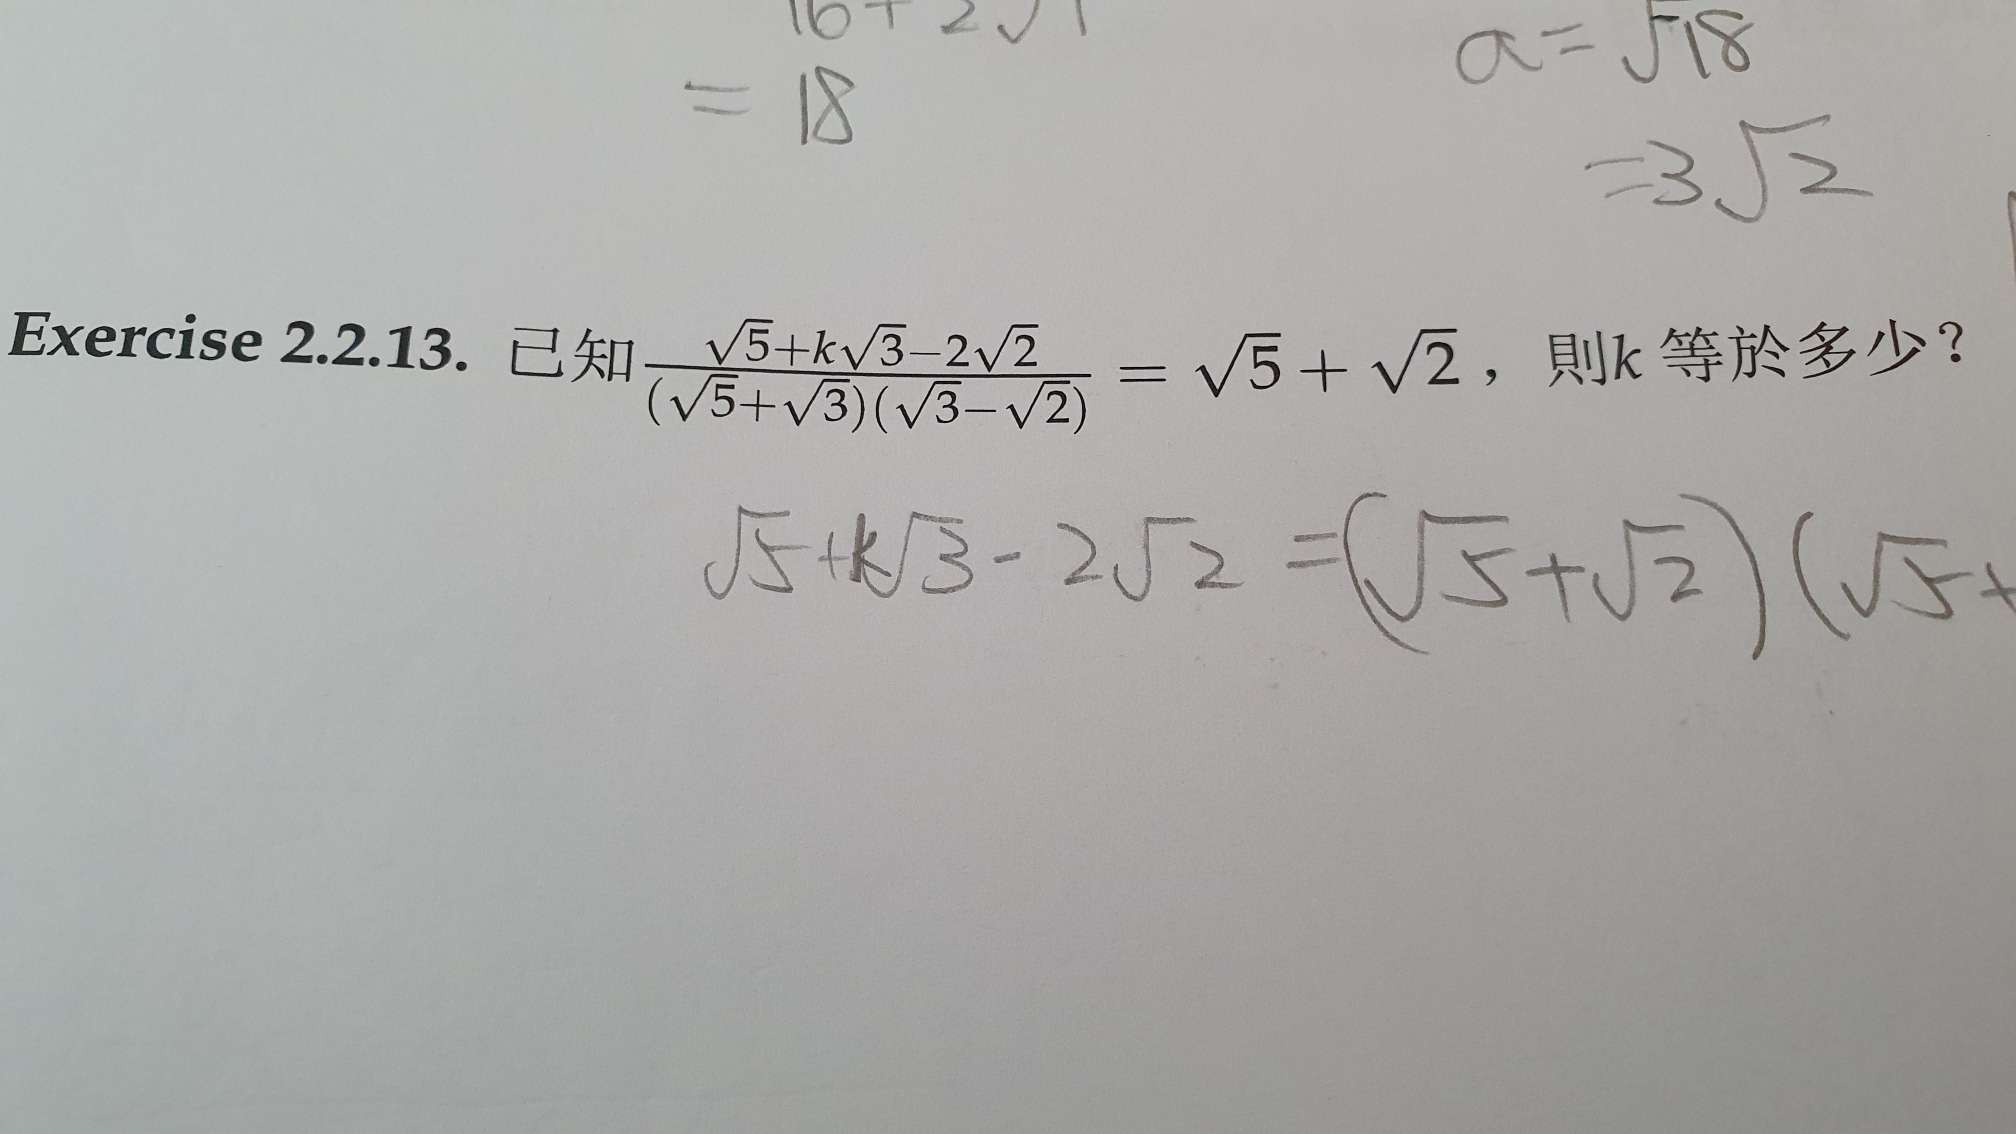 16+2√1
= 18
a=√18
=3√2
Exercise 2.2.13. 已知 (√5+k√3−2√2)/((√5+√3)(√3−√2)) = √5 + √2，則k 等於多少？
√5+k√3-2√2=(√5+√2)(√5+